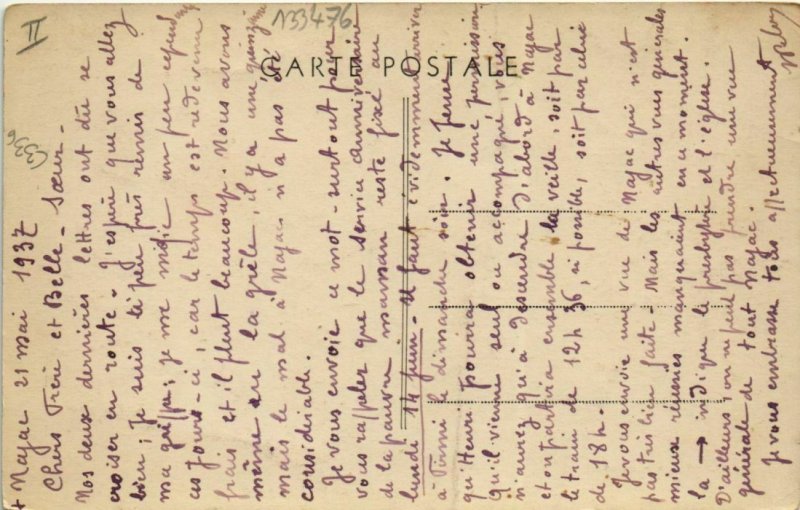 II
133476
C336
CARTE POSTALE
+ Najac 21 mai 1937
Chers Frère et Belle-Sœur -
Nos deux dernières lettres ont dû se
croiser en route. J'espère que vous allez
bien; je suis à peu près remis de
ma grippe; je me méfie un peu cependant
ces jours-ci, car le temps est redevenu
frais et il pleut beaucoup. Nous avons
même eu la grêle, il y a une quinzaine
mais le mal à Najac n'a pas été
considérable.
Je vous envoie ce mot - surtout pour
vous rappeler que le service anniversaire
de la pauvre maman reste fixé au
lundi 14 juin - Il faut évidemment arriver
à le dimanche soir. Je pense
qu'Henri pourra obtenir une permission
Qu'il vienne seul ou accompagné, vous
n'aurez qu'à descendre d'abord à Najac
et on partira ensemble la veille, soit par
le train de 12h 36, si possible, soit par celui
de 18h.
Je vous envoie une vue de Najac qui n'est
pas très bien faite - Mais les autres vues générales
mieux réussies manquaient en ce moment.
la → indique le presbytère et l'église.
D'ailleurs on ne peut pas prendre une vue
générale de tout Najac.
Je vous embrasse tous affectueusement